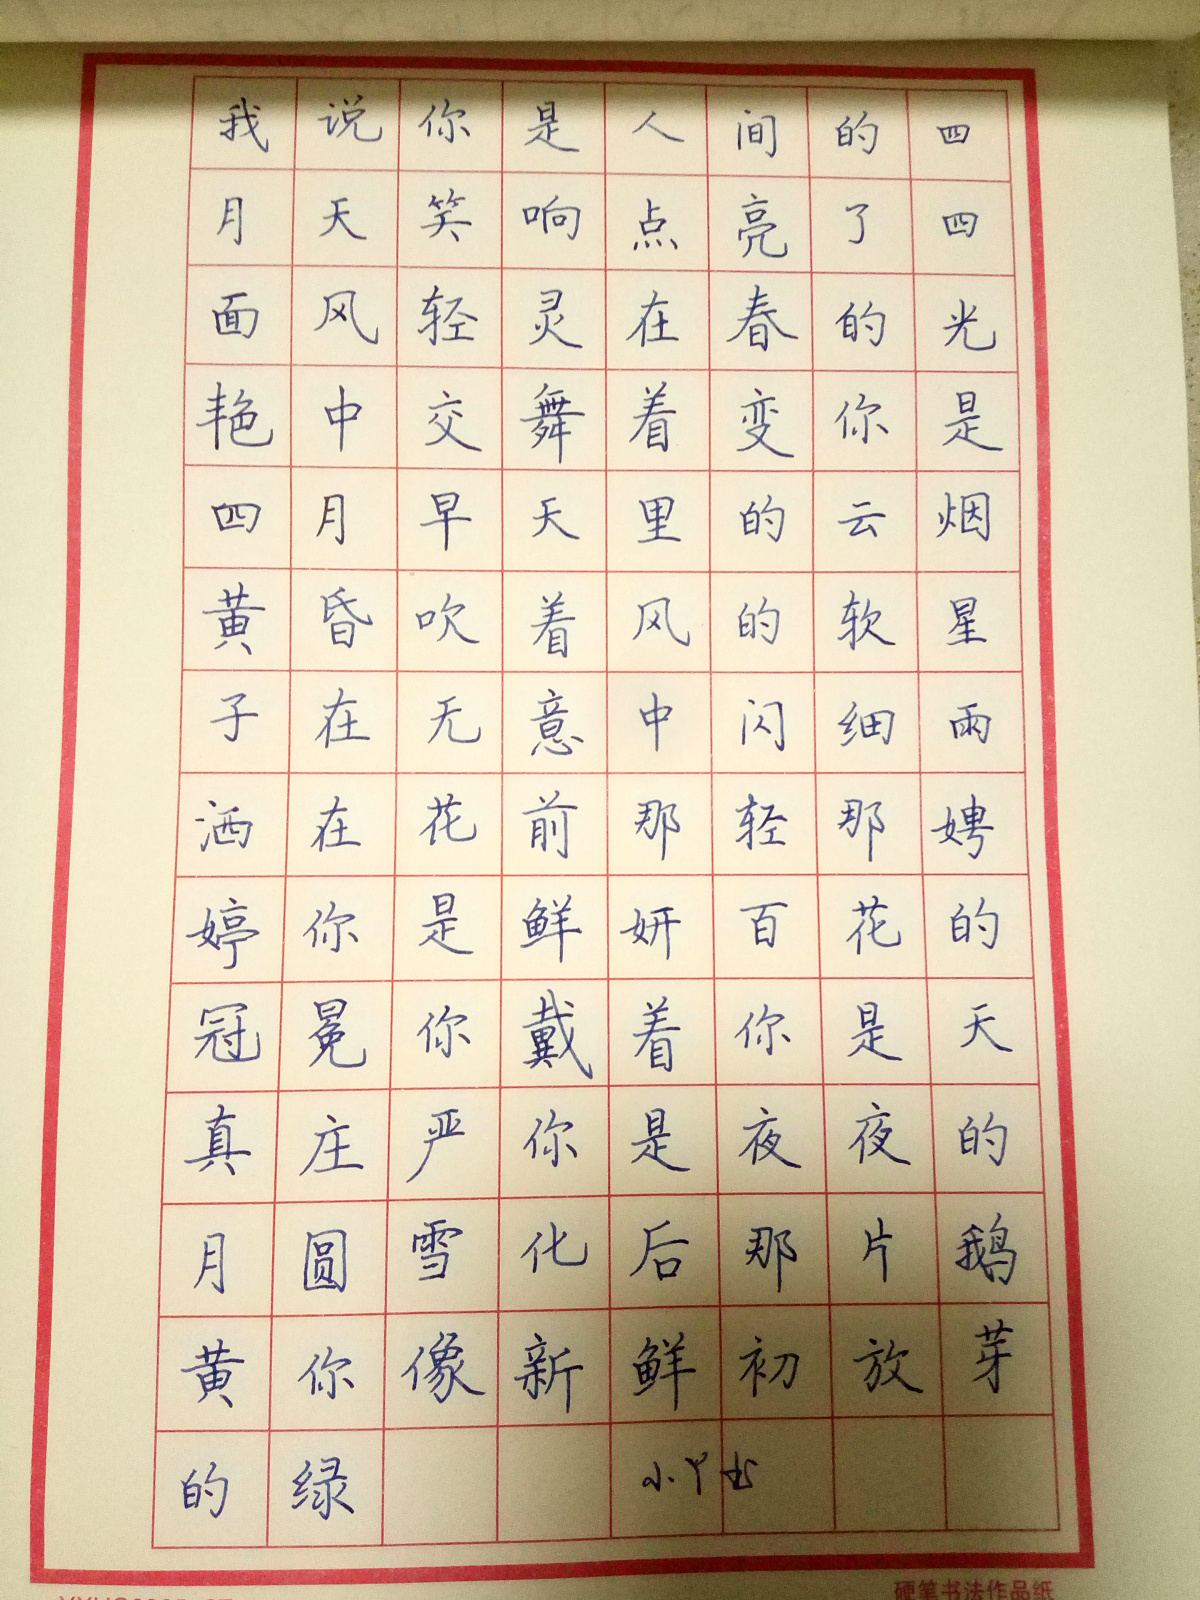 我说你是人间的四
月天笑响点亮了四
面风轻灵在春的光
艳中交舞着变你是
四月早天里的云烟
黄昏吹着风的软星
子在无意中闪细雨
洒在花前那轻那娉
婷你是鲜妍百花的
冠冕你戴着你是天
真庄严你是夜夜的
月圆雪化后那片鹅
黄你像新鲜初放芽
的绿
小丫书
硬笔书法作品纸